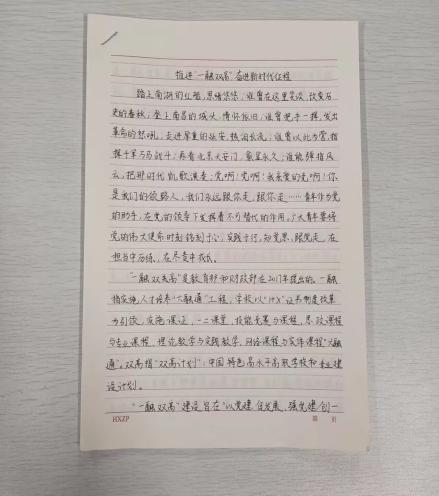 推进"一融双高"奋进新时代征程
踏上南湖的红船,思绪悠悠:谁曾在这里笑谈,饮食历
史的春秋;登上南昌的城头,情怀依旧:谁曾把手一挥,发出
革命的怒吼;走进厚重的延安,热泪长流:谁曾以此为营,指
挥千军万马战斗;再看北京天安门,敬星永久:谁能弹指风
云,把新时代凯歌演奏:党啊!党啊!我亲爱的党啊!你
是我们的领路人,我们永远跟你走,跟你走……青年作为党
的助手,在党的领导下发挥着不可替代的作用。广大青年要将
党的伟大使命时刻铭刻于心,实践于行,知党恩,跟党走,在
担当中历练,在尽责中成长。
"一融双关高"是教育部和财政部在2017年提出的。一融
指实施人才培养"大融通"工程,学校以"1+X"证书制度改革
为引领,实施课证,一二课堂,技能竞赛与课程,思政课程
与专业课程,理论教学与实践教学,网络课程与实体课程"大融
通"。双高指"双高计划":中国特色高水平高职学校和专业建
设计划。
"一融双高"建设旨在"以党建促发展,强党建创一
HXZP
第 页